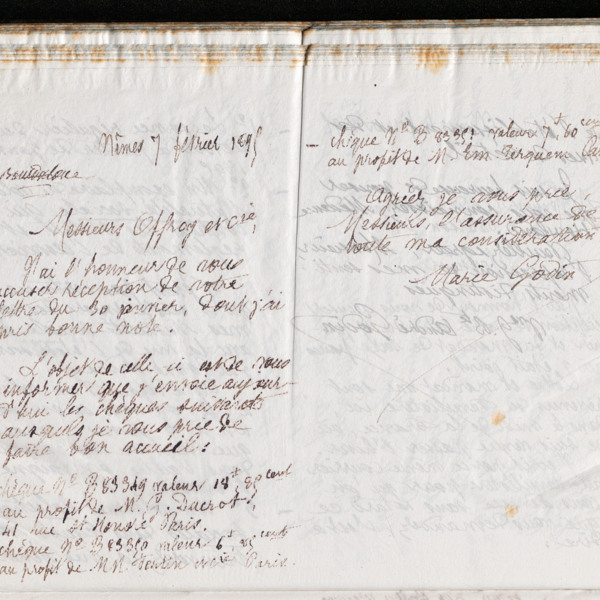 Nîmes 7 février 1895
Messieurs Offroy et Cie,
J'ai l'honneur de vous
accuser réception de votre
lettre du 30 janvier, dont j'ai
pris bonne note.
L'objet de celle ci est de vous
informer que j'envoie aujour-
d'hui les chèques suivants
auxquels je vous prie de
faire bon accueil :
chèque No B 83349 valeur 18f, 80 cent
au profit de M. G. Ducrot,
41 rue St Honoré Paris.
chèque No B 83350 valeur 6f, 35 cent
au profit de MM. et Cie Paris.
- chèque No B 83351 valeur 7f 60 cent
au profit de M. Em Terquem
Agréer je vous prie,
Messieurs, l'assurance de
toute ma considération
Marie Godin